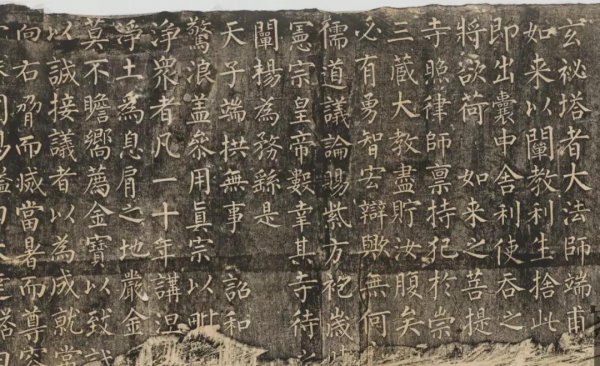 玄祕塔者大法師端甫
如来以闡教利生捨此
即出囊中舍利使吞之
將欲荷 如来之菩提
寺照律師禀持犯於崇
三蔵大教盡貯汝腹矣
必有勇智宏辯歟無何
儒道議論賜紫方袍歲
憲宗皇帝數幸其寺待之
闡楊為務繇是
天子端拱無事 詔和
驚浪盖參用真宗以毗
淨衆者凡一十年講涅
淨土為息肩之地嚴金
莫不瞻嚮薦金寶以致誠
以誠接議者以為成就常
向右脅而滅當暑而尊容